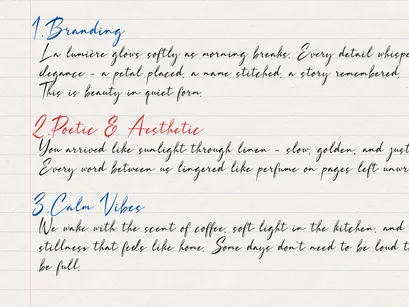 1. Branding
La lumière glows softly as morning breaks. Every detail whispe
elegance - a petal placed, a name stitched, a story remembered.
This is beauty in quiet form.
2. Poetic & Aesthetic
You arrived like sunlight through linen - slow, golden, and just
Every word between us lingered like perfume on pages left unwr
3. Calm Vibes
We wake with the scent of coffee, soft light in the kitchen, and
stillness that feels like home. Some days don't need to be loud t
be full.